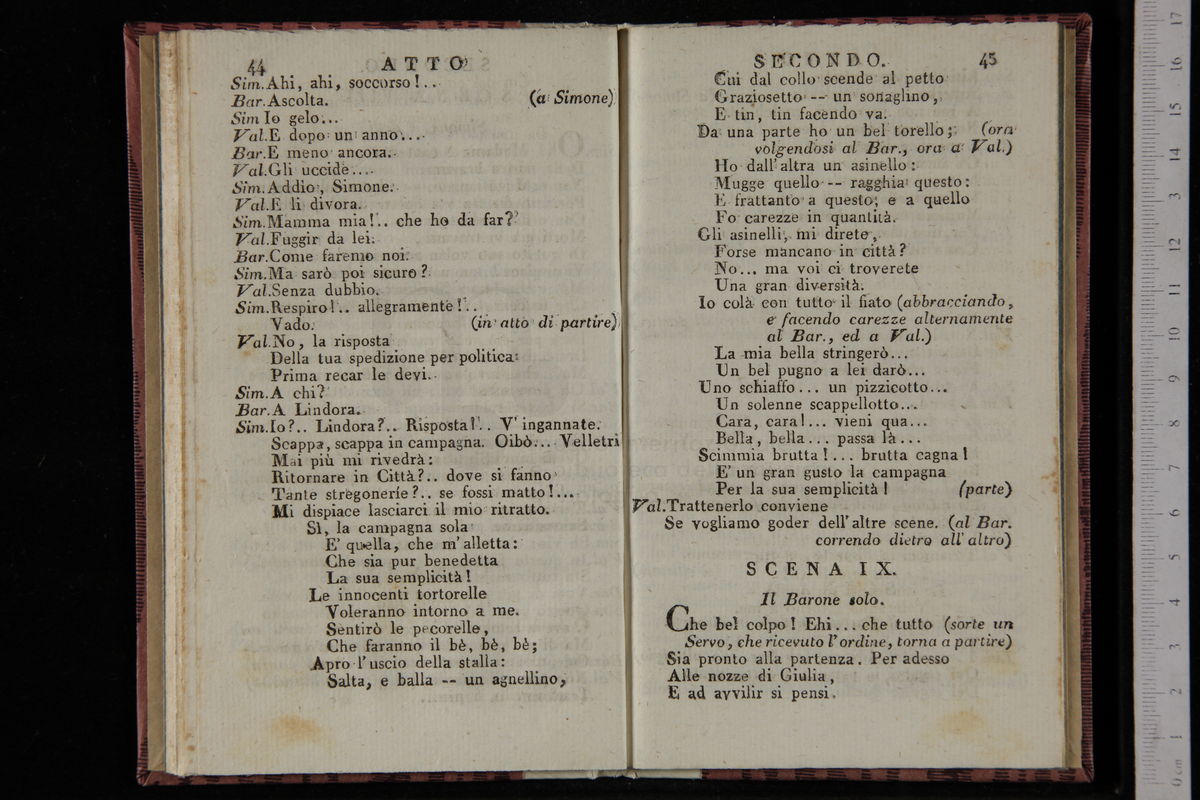 44 ATTO
Sim. Ahi, ahi, soccorso!..
Bar. Ascolta. (a Simone)
Sim Io gelo...
Val. E dopo un anno...
Bar. E meno ancora.
Val. Gli uccide...
Sim. Addio, Simone.
Val. E li divora.
Sim. Mamma mia!.. che ho da far?
Val. Fuggir da lei.
Bar. Come faremo noi.
Sim. Ma sarò poi sicuro?
Val. Senza dubbio.
Sim. Respiro!.. allegramente!..
Vado. (in atto di partire)
Val. No, la risposta
Della tua spedizione per politica
Prima recar le devi.
Sim. A chi?
Bar. A Lindora.
Sim. Io?.. Lindora?.. Risposta!.. V' ingannate.
Scappa, scappa in campagna. Oibò... Velletri
Mai più mi rivedrà:
Ritornare in Città?.. dove si fanno
Tante stregonerie?.. se fossi matto!...
Mi dispiace lasciarci il mio ritratto.
Sì, la campagna sola
E' quella, che m' alletta:
Che sia pur benedetta
La sua semplicità!
Le innocenti tortorelle
Voleranno intorno a me.
Sentirò le pecorelle,
Che faranno il bè, bè, bè;
Apro l' uscio della stalla:
Salta, e balla -- un agnellino,
SECONDO. 45
Cui dal collo scende al petto
Graziosetto -- un sonaglino,
E tin, tin facendo va.
Da una parte ho un bel torello; (ora
volgendosi al Bar., ora a Val.)
Ho dall' altra un asinello:
Mugge quello -- ragghia questo:
E frattanto a questo, e a quello
Fo carezze in quantità.
Gli asinelli, mi direte,
Forse mancano in città?
No... ma voi ci troverete
Una gran diversità.
Io colà con tutto il fiato (abbracciando,
e facendo carezze alternamente
al Bar., ed a Val.)
La mia bella stringerò...
Un bel pugno a lei darò...
Uno schiaffo... un pizzicotto...
Un solenne scappellotto...
Cara, cara!... vieni qua...
Bella, bella... passa là...
Scimmia brutta!... brutta cagna!
E' un gran gusto la campagna
Per la sua semplicità! (parte)
Val. Trattenerlo conviene
Se vogliamo goder dell' altre scene. (al Bar.
correndo dietro all' altro)
SCENA IX.
Il Barone solo.
Che bel colpo! Ehi... che tutto (sorte un
Servo, che ricevuto l' ordine, torna a partire)
Sia pronto alla partenza. Per adesso
Alle nozze di Giulia,
E ad avvilir si pensi.
17
16
15
14
13
12
11
10
9
8
7
6
5
4
3
2
1
0 cm